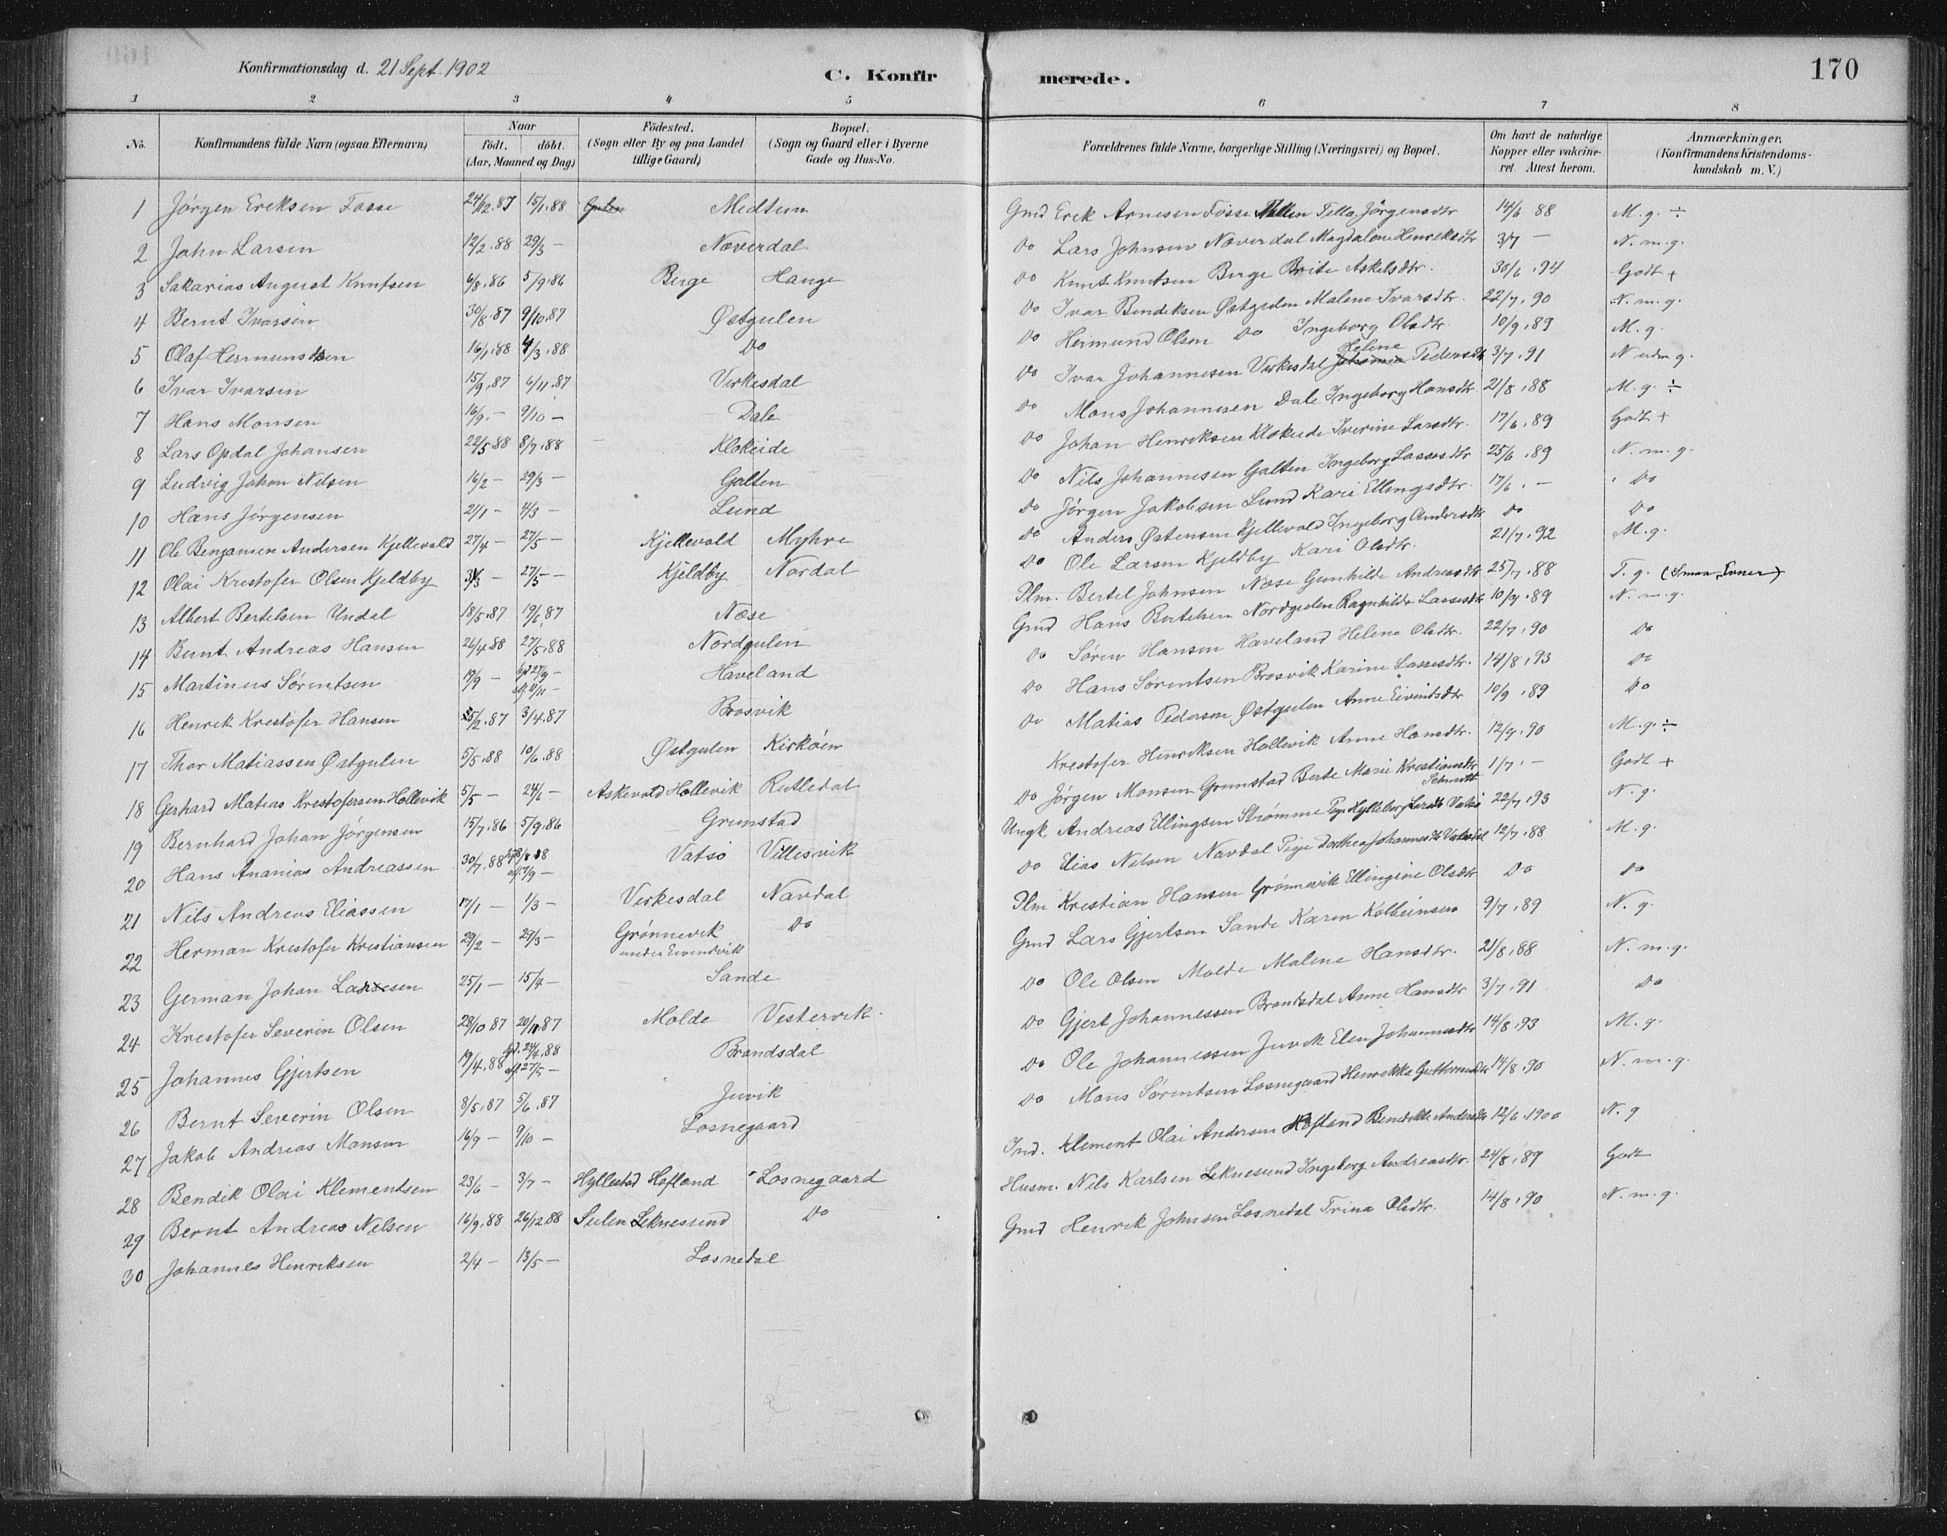 Konfirmationsdag d. 21 Sept. 1902 C. Konfirmerede. 170
1 2 3 4 5 6 7 8
No. Konfirmandens fulde Navn (ogsaa Efternavn) Naar født. døbt. (Aar, Maaned og Dag) Fødested. (Sogn eller By og paa Landet tillige Gaard) Bopæl. (Sogn og Gaard eller i Byerne Gade og Hus-No. Forældrenes fulde Navne, borgerlige Stilling (Næringsvei) og Bopæl. Om havt de naturlige Kopper eller vakcineret. Attest herom. Anmærkninger. (Konfirmandens Kristendomskundskab m. V.)
1 Jørgen Eriksen Fosse 24/12.87 15/1.88 Gulen Midtun Gmd Erik Arnesen Fosse Tella Jørgensdtr 14/6 88 M.g. ÷
2 John Larsen 12/2.88 29/3 — Næverdal Do Lars Johnsen Næverdal Magdalene Henriksdtr 3/7 — N.m.g.
3 Sakarias August Knutsen 6/8.86 5/9.86 Berge Hange Do Knut Knutsen Berge Brite Askelsdtr. 30/6.94 Godt +
4 Bernt Ivarsen 30/8.87 9/10.87 Østgulen Do Ivar Bendiksen Østgulen Malene Ivarsdtr. 22/7.90 N.m.g.
5 Olaf Hermundsen 16/1.88 4/3.88 Do Do Hermund Olsen Do Ingeborg Olsdtr. 10/9.89 M.g.
6 Ivar Ivarsen 15/9.87 6/11.87 Virkesdal Do Ivar Johannesen Virkesdal Helene Pedersdtr 3/7.91
7 Hans Monsen 16/9. — 9/10 — Dale Do Mons Johannesen Dale Ingeborg Hansdtr 21/8.88 M.g. ÷
8 Lars Opdal Johansen 22/5.88 8/7.88 Klokeide Do Johan Henriksen Klokeide Iverine Larsdtr. 17/6.89 Godt +
9 Ludvig Johan Nilsen 16/2 — 29/3 — Galten Do Nils Johannesen Galten Ingeborg Lassesdtr 25/6.89 N.m.g.
10 Hans Jørgensen 2/1 — 4/3 — Lund Do Jørgen Jakobsen Lund Kari Ellingsdtr. 17/6. — Do
11 Ole Benjamin Andersen Kjellevold 27/4 — 27/5 — Kjellevold Myhre Do Anders Østensen Kjellevold Ingeborg Andersdtr Do Do
12 Olai Krestofer Olsen Kjeldby 27/5 — Kjeldby Nordal Do Ole Larsen Kjeldby Kari Olsdtr. 21/7.92 M.g.
13 Albert Bertelsen Undal 18/5.87 19/6.87 Næse Plm. Bertel Johnsen Næse Gunhilde Andreasdtr 25/7.88 T.g. (Smaa Evner)
14 Bernt Andreas Hansen 26/4.88 27/5.88 Nordgulen Gmd Hans Bertelsen Nordgulen Ragnhilde Lassesdtr 10/9.89 N.m.g.
15 Martinus Sørentsen 17/9 — Haveland Do Søren Hansen Haveland Helene Olsdtr. 22/7.90 Do
16 Henrik Krestofer Hansen 3/4.87 Brosvik Do Hans Sørentsen Brosvik Karine Lassesdtr. 14/8.93 Do
17 Thor Matiassen Østgulen 5/5.88 10/6.88 Østgulen Kirkøen Do Matias Pedersen Østgulen Anne Eivindsdtr 10/9.89 Do
18 Gerhard Matias Krestofersen Hollevik 5/5 — 24/6 — Askevold Hollevik Rutledal Krestofer Henriksen Hollevik Anne Hansdtr. 12/9.90 M.g. ÷
19 Bernhard Johan Jørgensen 15/7.86 5/9.86 Grunstad Do Jørgen Monsen Grunstad Berte Marie Kristiansdtr Schmidt 1/7. — Godt +
20 Hans Ananias Andreassen 30/7.88 Vatsø Villesvik Ungk. Andreas Ellingsen Strømme 22/7.93 N.g.
21 Nils Andreas Eliassen 17/1 — 1/3 — Virkesdal Navdal Do Elias Nilsen Navdal Pige Dorthea 12/7.88 M.g.
22 Herman Krestofer Kristiansen 29/2 — 27/3 — Grønnevik under Eivindvik Do Plm Kristian Hansen Grønnevik Ellingine Olsdtr Do Do
23 German Johan Larsen 25/1 — 15/4 — Sande Gmd Lars Gjertsen Sande Karen Kolbeinsen 9/7.89 N.g.
24 Krestofer Severin Olsen 28/10.87 20/11.87 Molde Vestervik Do Ole Olsen Molde Malene Hansdtr. 21/8.88 N.m.g.
25 Johannes Gjertsen 19/4.88 Brandsdal Do Gjert Johannessen Brandsdal Anne Hansdtr 3/7.91 Do
26 Bernt Severin Olsen 8/5.87 5/6.87 Juvik Do Ole Johannessen Juvik Elen Johannesdtr 14/8.93 M.g.
27 Jakob Andreas Monsen 16/9 — 9/10 — Losnegaard Do Mons Sørentsen Losnegaard Henrikka Guttormsdtr 14/8.90 N.m.g.
28 Bendik Olai Klementsen 23/6 — 3/7 — Hyllestad Hofland Losnegaard Ind. Klement Olai Andersen Hofland Bendikte Andersdtr 12/6.1900 N.g
29 Bernt Andreas Nelsen 16/9.88 26/12.88 Sulen Leknesund Do Husm. Nils Karlsen Leknesund Ingeborg Andreasdtr. 24/8.89 Godt
30 Johannes Henriksen 2/4 — 13/5 — Losnedal Gmd Henrik Johnsen Losnedal Trina Olsdtr. 14/8.90 N.m.g.